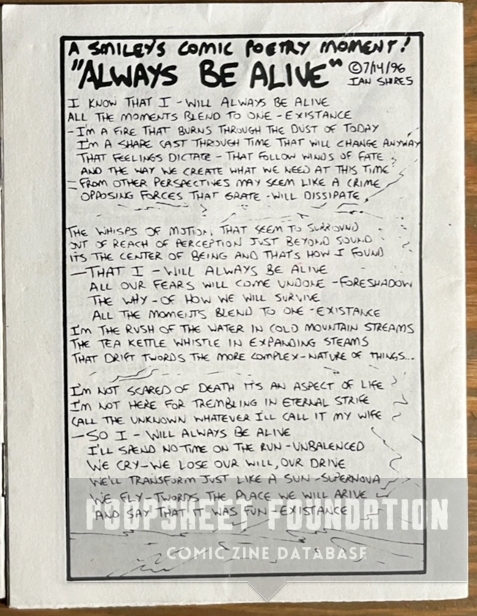 A SMILEY'S COMIC POETRY MOMENT!
"ALWAYS BE ALIVE"
©7/14/96
IAN SHIRES
I KNOW THAT I - WILL ALWAYS BE ALIVE
ALL THE MOMENTS BLEND TO ONE - EXISTANCE
- I'M A FIRE THAT BURNS THROUGH THE DUST OF TODAY
I'M A SHAPE CAST THROUGH TIME THAT WILL CHANGE ANYWAY
THAT FEELINGS DICTATE - THAT FOLLOW WINDS OF FATE
AND THE WAY WE CREATE WHAT WE NEED AT THIS TIME
- FROM OTHER PERSPECTIVES MAY SEEM LIKE A CRIME
OPPOSING FORCES THAT GRATE - WILL DISSIPATE
THE WHISPS OF MOTION, THAT SEEM TO SURROUND
OUT OF REACH OF PERCEPTION JUST BEYOND SOUND
ITS THE CENTER OF BEING AND THAT'S HOW I FOUND
- THAT I - WILL ALWAYS BE ALIVE
ALL OUR FEARS WILL COME UNDONE - FORESHADOW
THE WHY - OF HOW WE WILL SURVIVE
ALL THE MOMENTS BLEND TO ONE - EXISTANCE
I'M THE RUSH OF THE WATER IN COLD MOUNTAIN STREAMS
THE TEA KETTLE WHISTLE IN EXPANDING STEAMS
THAT DRIFT TWORDS THE MORE COMPLEX - NATURE OF THINGS...
I'M NOT SCARED OF DEATH IT'S AN ASPECT OF LIFE
I'M NOT HERE FOR TREMBLING IN ETERNAL STRIFE
CALL THE UNKNOWN WHATEVER I'LL CALL IT MY WIFE
- SO I - WILL ALWAYS BE ALIVE
I'LL SPEND NO TIME ON THE RUN - UNBALENCED
WE CRY - WE LOSE OUR WILL, OUR DRIVE
WE'LL TRANSFORM JUST LIKE A SUN - SUPERNOVA
WE FLY - TWORDS THE PLACE WE WILL ARIVE
AND SAY THAT IT WAS FUN - EXISTANCE
POOPSHEET FOUNDATION
COMIC ZINE DATABASE